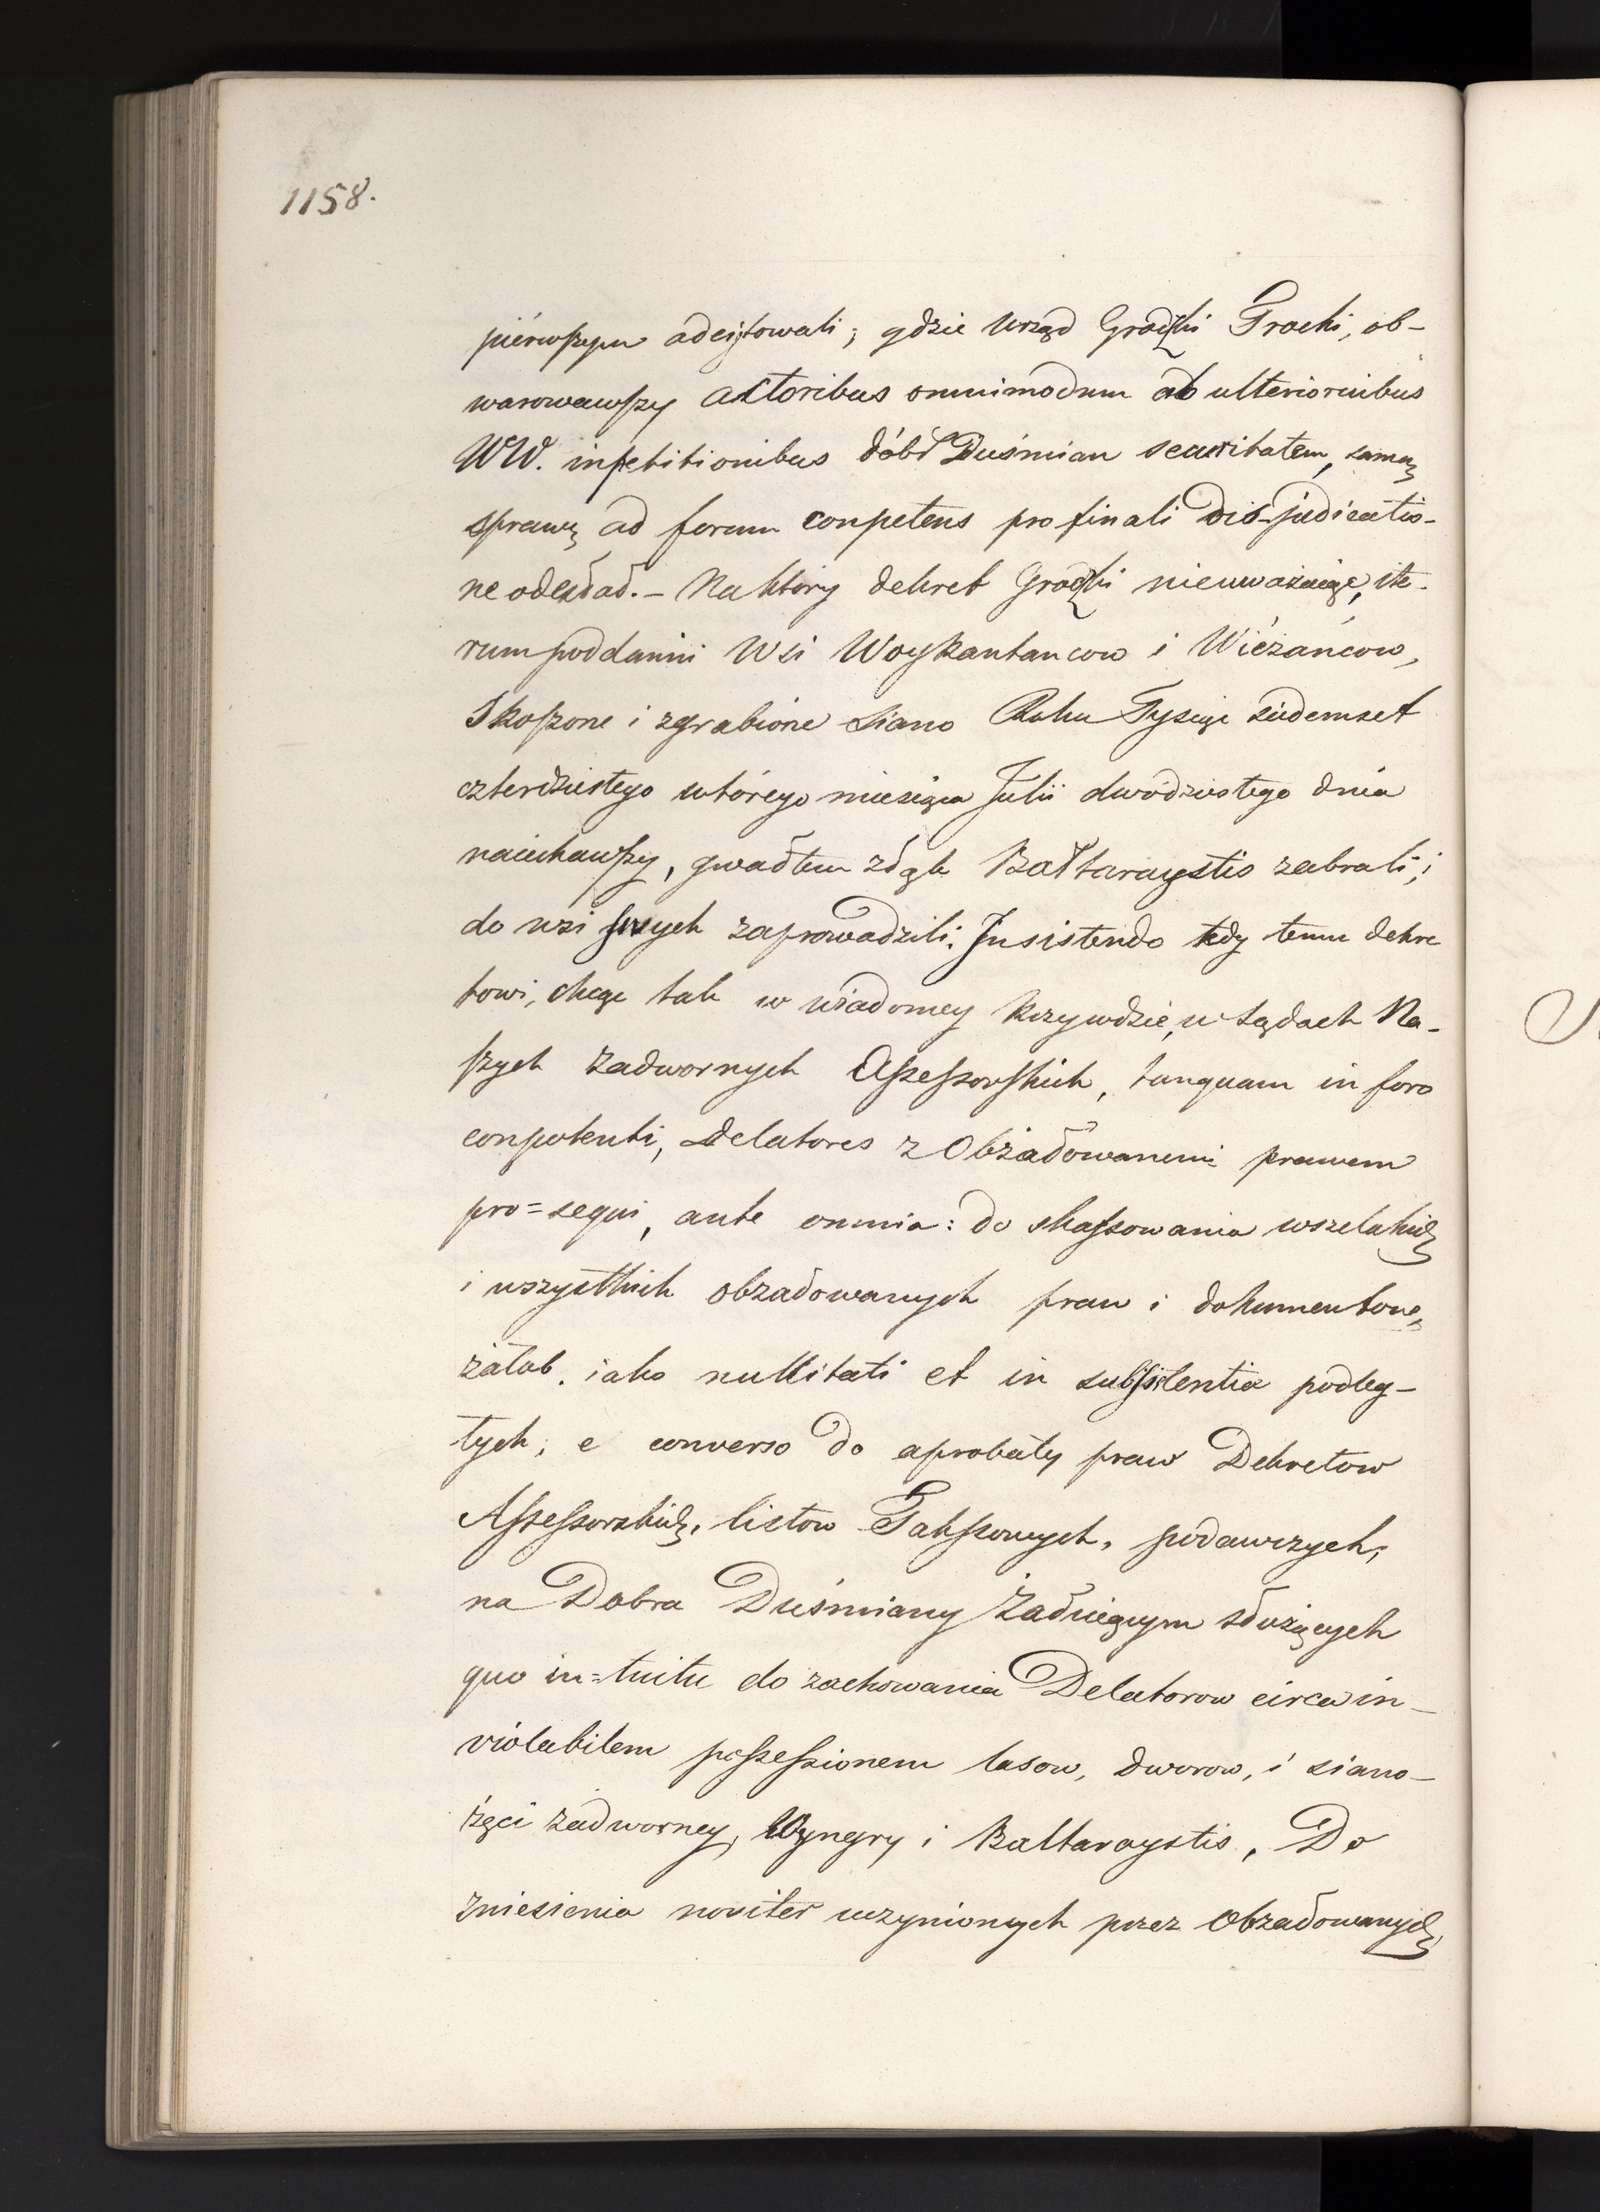 1158.
piérwszym adcijtowali; gdzie Urząd Grodzki Trocki, ob-
warowawszy actoribus omnimodum ab ulterioribus
WW. inpetitionibus dóbr Duśmian securitatem, samą
sprawę ad forum conpetens pro finali dis-judicatio-
ne odesłał. - Na który dekret Grodzki nieuważaiąc, ite-
rum poddanni Wsi Woykantancow i Wiézańcow,
Skoszone i zgrabione siano Roku Tysiąc siedemset
czterdziestego wtórego miesiąca Julii dwódziestego dnia
naiechawszy, gwałtem z łąk Bałtaraystis zabrali, i
do wsi swych zaprowadzili. Insistendo tedy temu dekre
towi, chcąc tak w wiadomey krzywdzie, w sądach Na-
szych Zadwornych Assessorskich, tanquam in foro
conpotenti, Delatores z Obżałowanemi prawem
pro=sequi, ante omnia: do skassowania wszelakich
i wszystkich obzałowanych praw i dokumentow,
załob. iako nullitati et in subsistentia podleg-
łych, e converso do aprobaty praw Dekretow
Assessorskich, listow Takssowych, podawczych,
na Dobra Duśmiany Żałuiącym słóżących
quo in=tuitu do zachowania Delatorow circa in-
violabilem possessionem lasow, dworow, i siano-
żęci zadworney, Wyngry i Baltaraystis, Do
zniesienia noviter uczynionych przez Obzałowanych